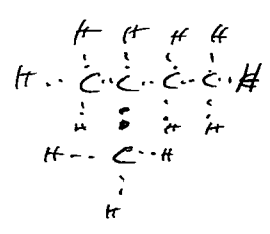 H H H H
H C C C C H
H H H
H C H
H